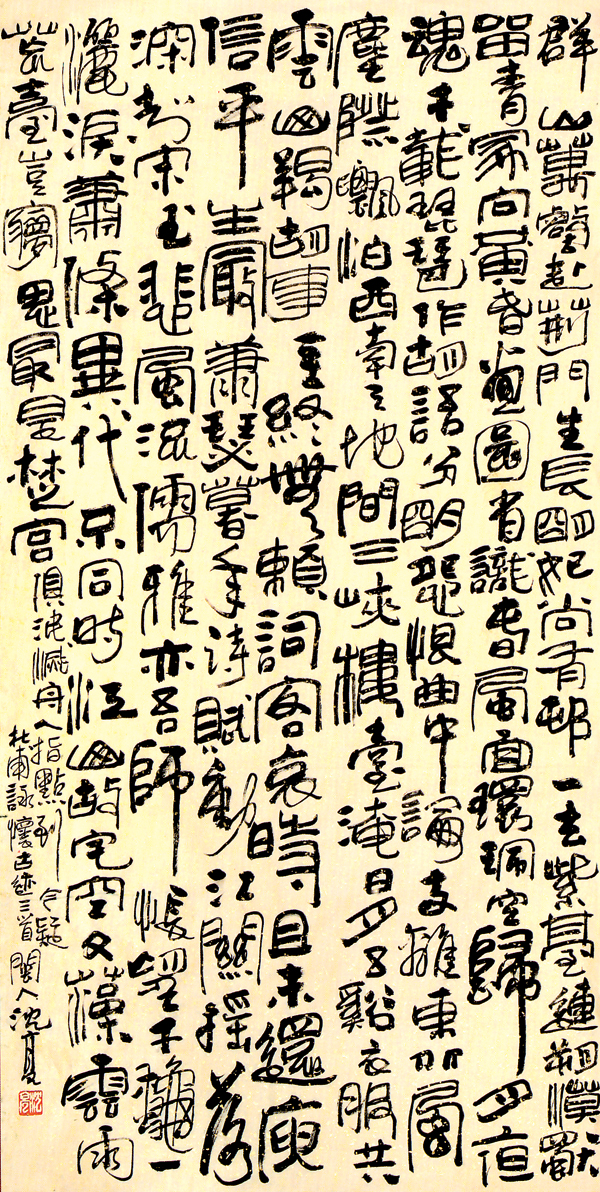 群山萬壑赴荆門生長明妃尚有邨一去紫臺連朔漠獨
留青冢向黃昏畫圖省識春風面環珮空歸月夜
魂千載琵琶作胡語分明怨恨曲中論支離東北風
塵際飄泊西南天地間三峽樓臺淹日月五谿衣服共
雲山羯胡事主終無賴詞客哀時且未還庾
信平生最蕭瑟暮年詩賦動江關摇落
深知宋玉悲風流儒雅亦吾師悵望千龝一
灑淚蕭條異代不同時江山故宅空文藻雲雨
荒臺豈夢思最是楚宮俱泯滅舟人指點到今疑
杜甫詠懷古迹三首 閩人沈